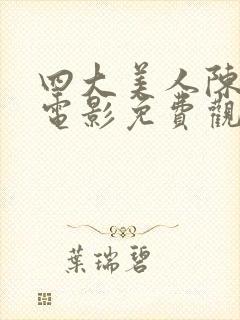 四大美人陳
電影免費觀
葉瑞碧